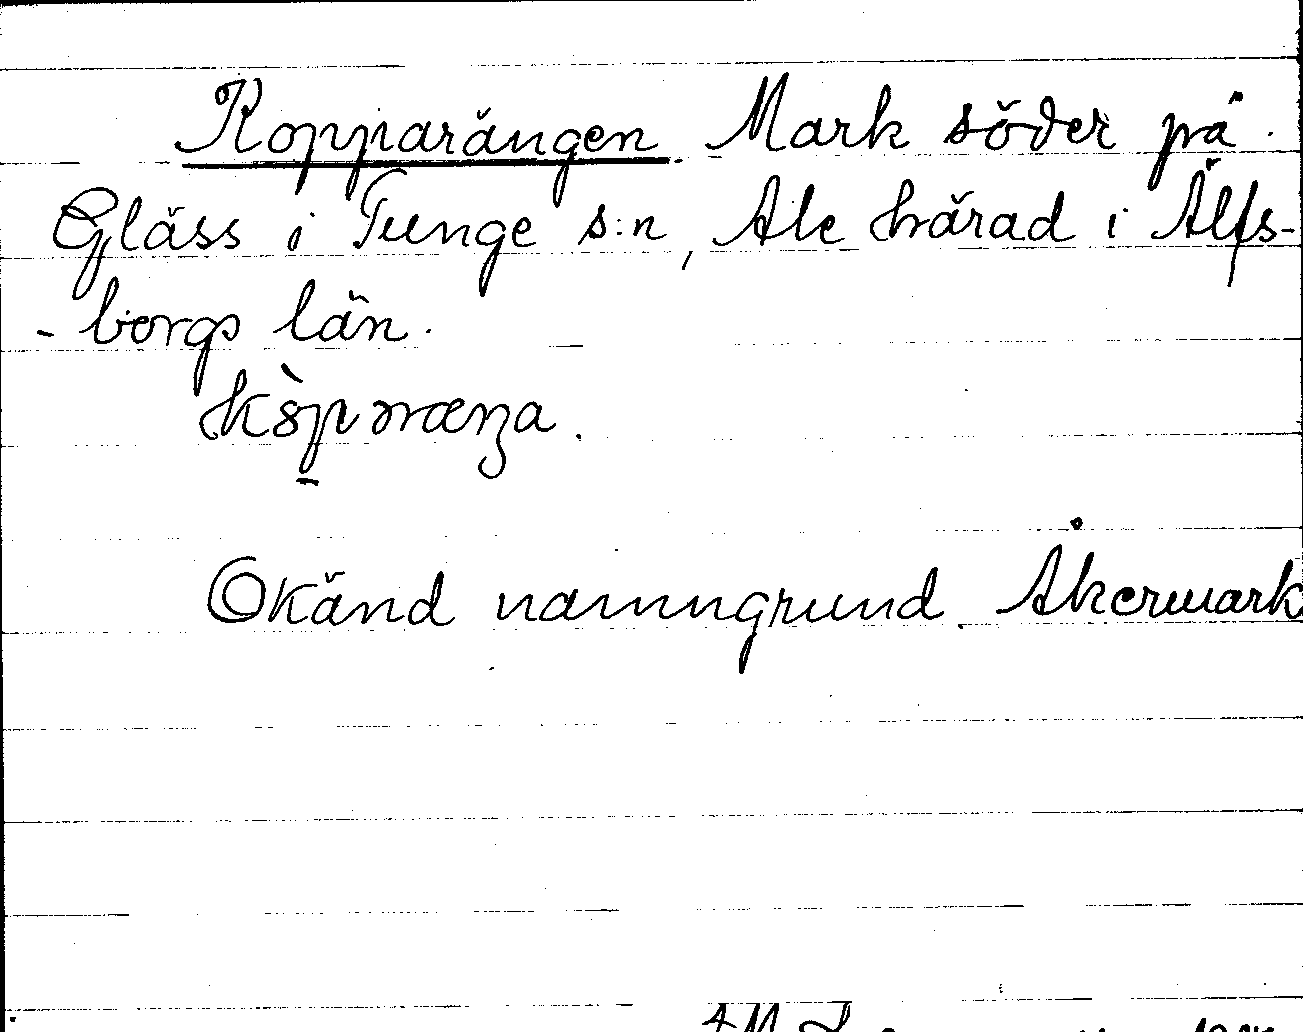 Kopparängen. Mark söder på
Gläss i Tunge s:n, Ale härad i Älfs-
- borgs län.
Okänd namngrund. Åkermark